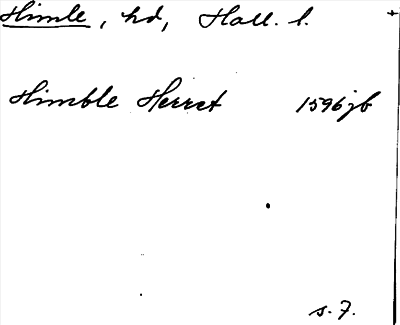 Himle, hd, Hall. l.
Himble Herret 1596 jb
s. 7.